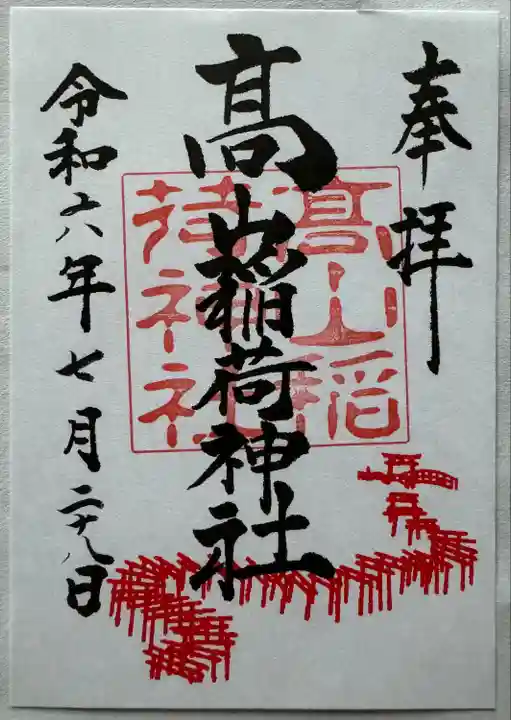 奉拝
髙山稲荷神社
髙山稲荷神社
令和六年七月二十八日